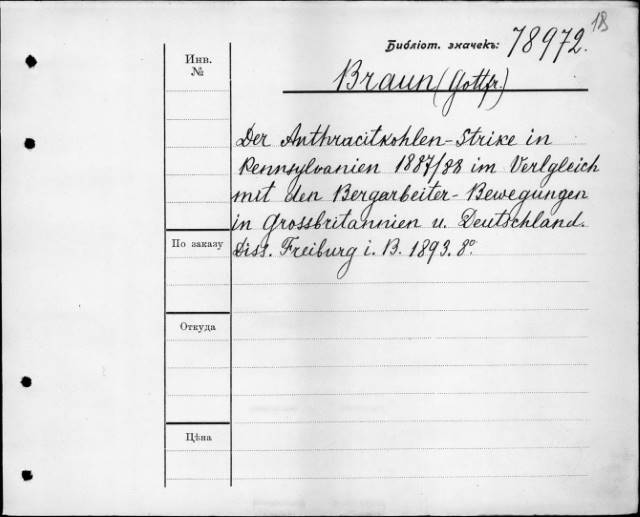 18
Библіот. значекъ: 78972.
Инв.
№
Braun (Gottfr.)
Der Anthracitkohlen-Strike in
Pennsylvanien 1887/88 im Verlgleich
mit den Bergarbeiter-Bewegungen
in Grossbritannien u. Deutschland.
Diss. Freiburg i. B. 1893. 8º.
По заказу
Откуда
Цѣна